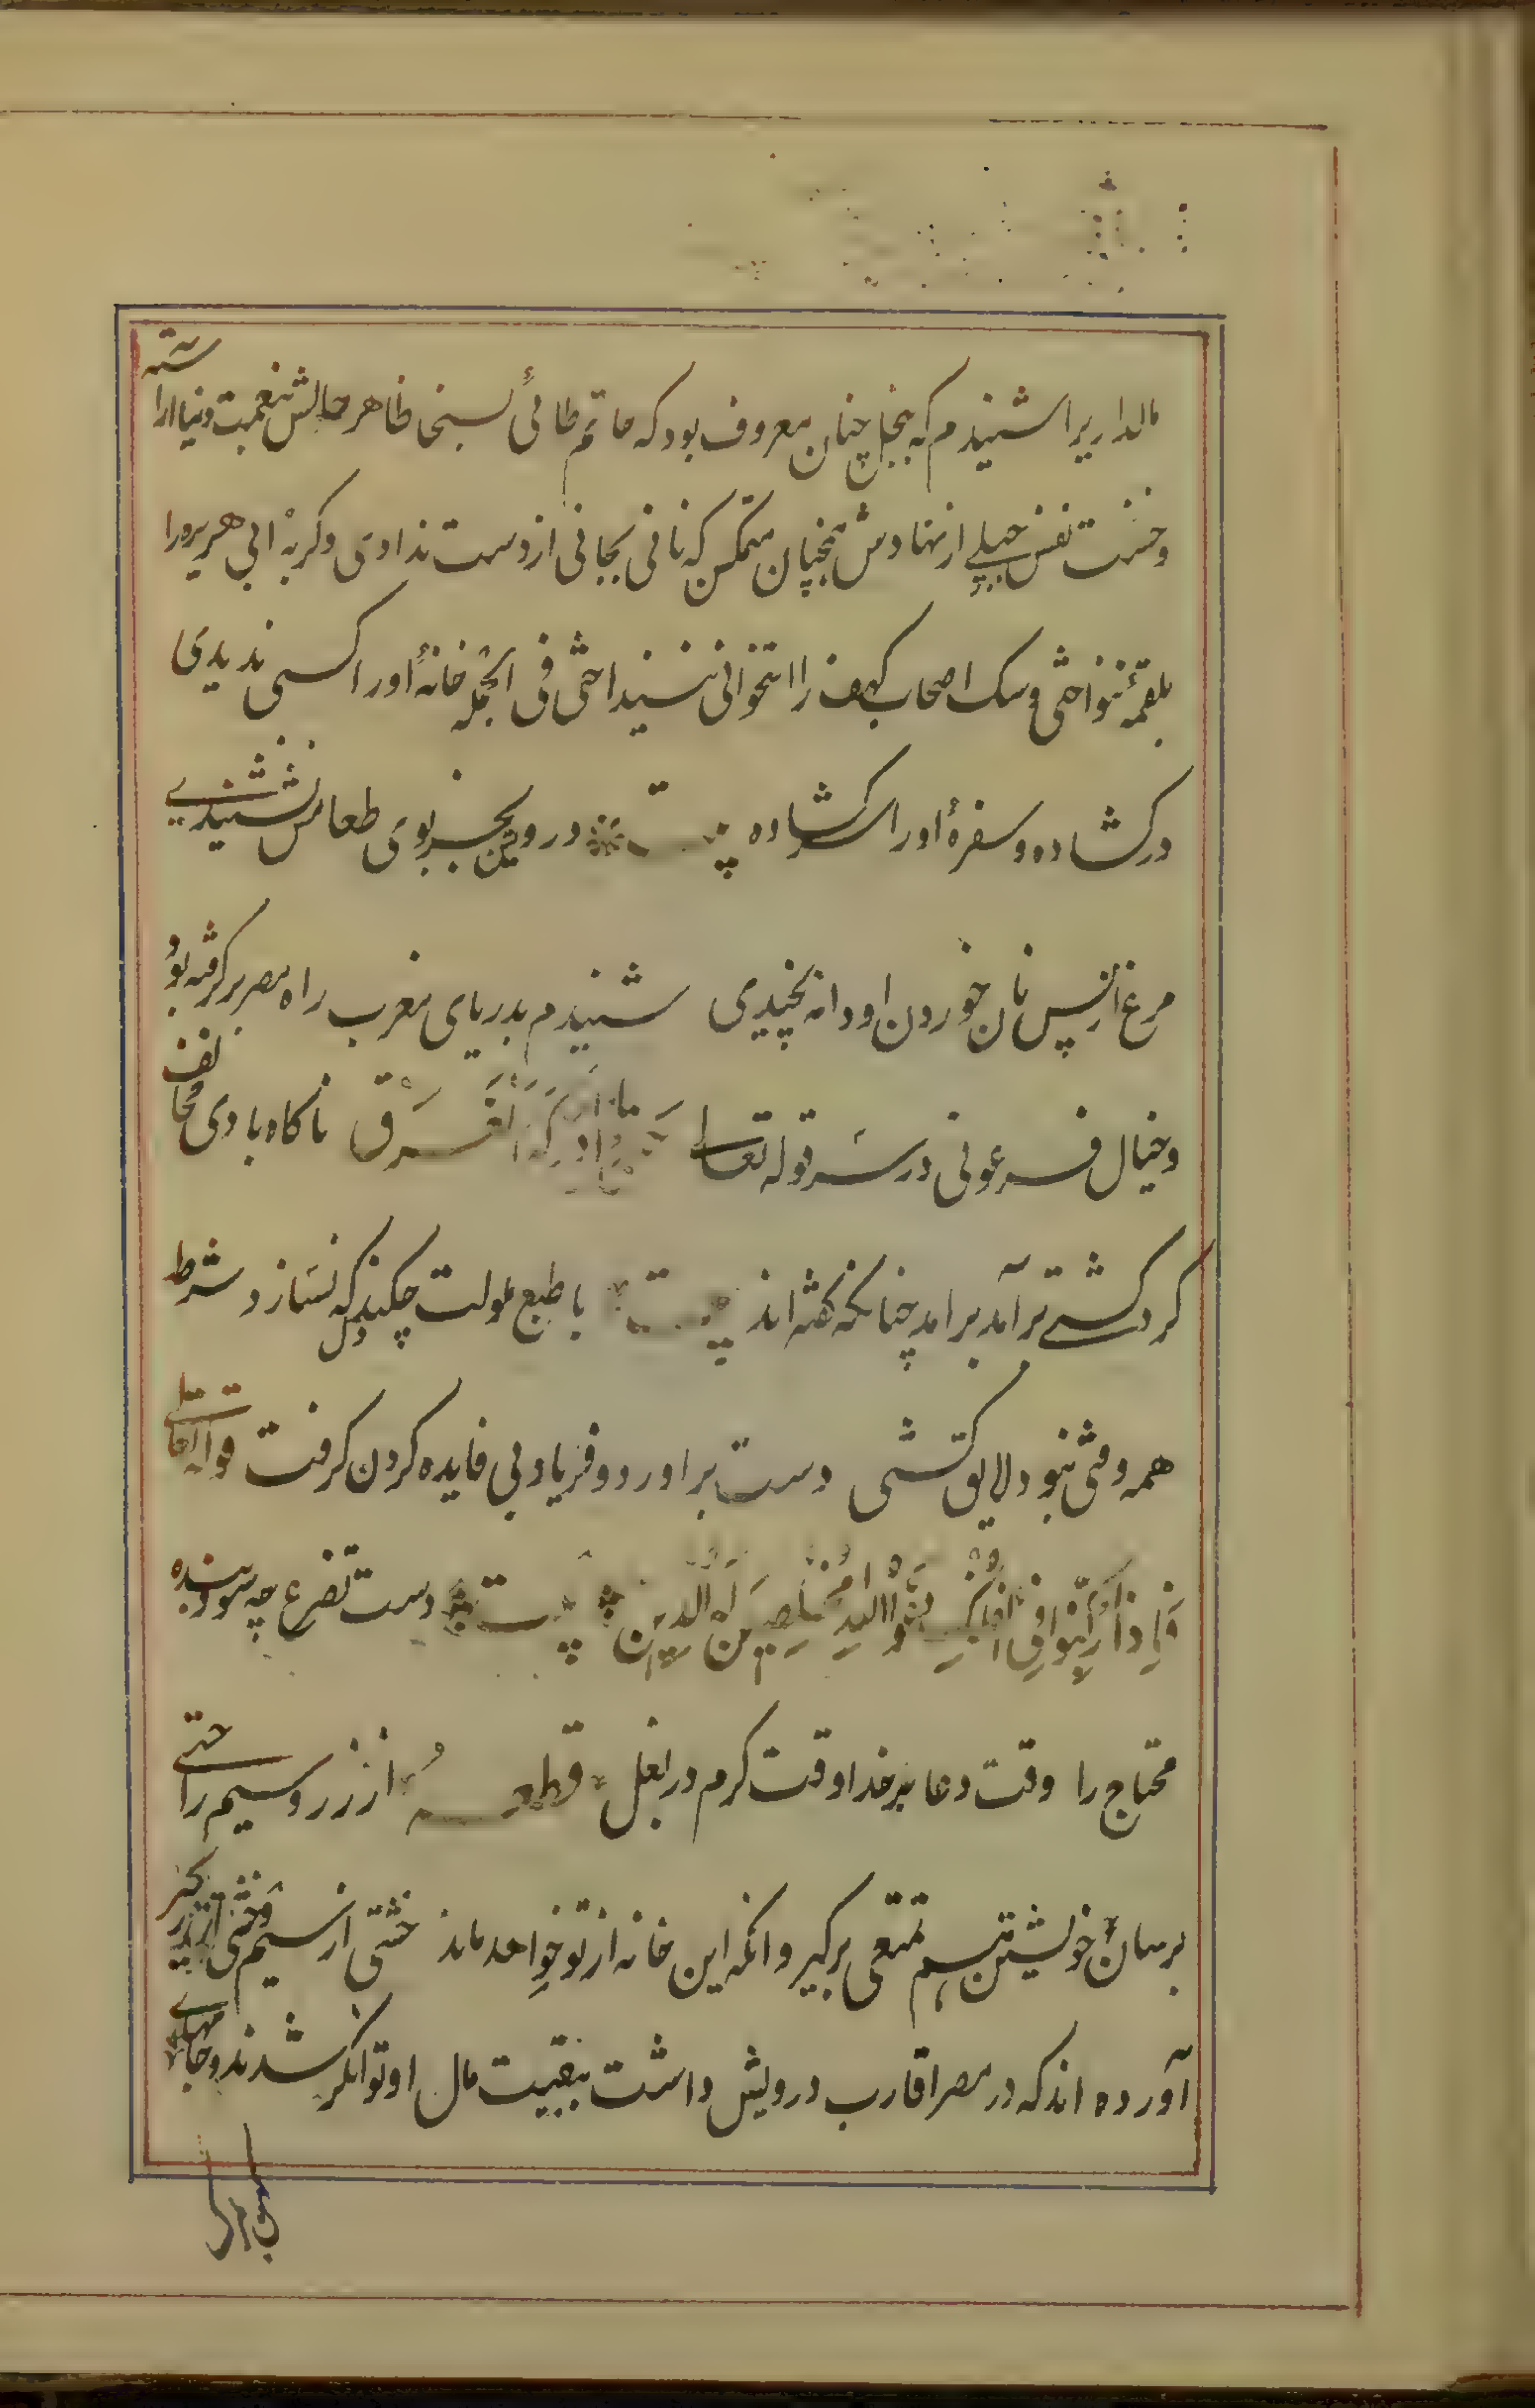 مالداریرا شنیدم که ببخل چنان معروف بود که حاتم طائی بسخا ظاهر حالش بنعمت دنیا اراسته
و خست نفس جبلے از نهادش همچنان متمکن که نانی بجانی از دست ندادی و کربهٔ ابی هریره را
بلقمهٔ ننواختی و سک اصحاب کهف را استخوانی نینداختی فی الجمله خانهٔ او را کسی ندیدی
در کشاده و سفرهٔ او را سر کشاده بیت درویش بجز بوی طعامش نشنیدے
مرغ از پس نان خوردن او دانه نچیدی شنیدم بدریای مغرب راه مصر بر کرفته بود
و خیال فرعونی در سر قوله تعالے حَتّٰی اِذا اَدرَکَهُ الغَرَقُ ناکاه بادی مخالف
کرد کشتے برآمد برامد چنانکه کفته اند بیت با طبع ملولت چکند دل که نسازد شرطه
همه وقتی نبود لایق کشتی دست براورد و فریاد بی فایده کردن کرفت قوله تعالے
فَاِذا رَکِبُوا فِی الفُلکِ دَعَوُا اللهَ مُخلِصِینَ لَهُ الدّین بیت دست تضرع چه سود بنده
محتاج را وقت دعا بر خدا وقت کرم در بغل قطعه از زر و سیم راحتے
برسان خویشتن هم تمتعی برکیر وانکه این خانه از تو خواهد ماند خشتی از سیم و خشتی از زر کیر
آورده اند که در مصر اقارب درویش داشت ببقیت مال او توانکر شدند و جامهاے